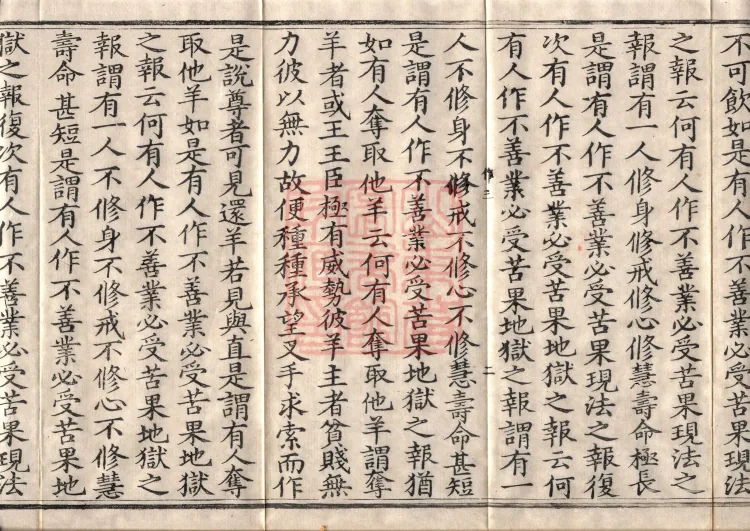 不可飲如是有人作不善業必受苦果現法
之報云何有人作不善業必受苦果現法之
報謂有一人修身修戒修心修慧壽命極長
是謂有人作不善業必受苦果現法之報復
次有人作不善業必受苦果地獄之報云何
有人作不善業必受苦果地獄之報謂有一
作三
二
人不修身不修戒不修心不修慧壽命甚短
是謂有人作不善業必受苦果地獄之報猶
如有人奪取他羊云何有人奪取他羊謂奪
羊者或王王臣極有威勢彼羊主者貧賤無
力彼以無力故便種種承望叉手求索而作
是說尊者可見還羊若見與直是謂有人奪
取他羊如是有人作不善業必受苦果地獄
之報云何有人作不善業必受苦果地獄之
報謂有一人不修身不修戒不修心不修慧
壽命甚短是謂有人作不善業必受苦果地
獄之報復次有人作不善業必受苦果現法